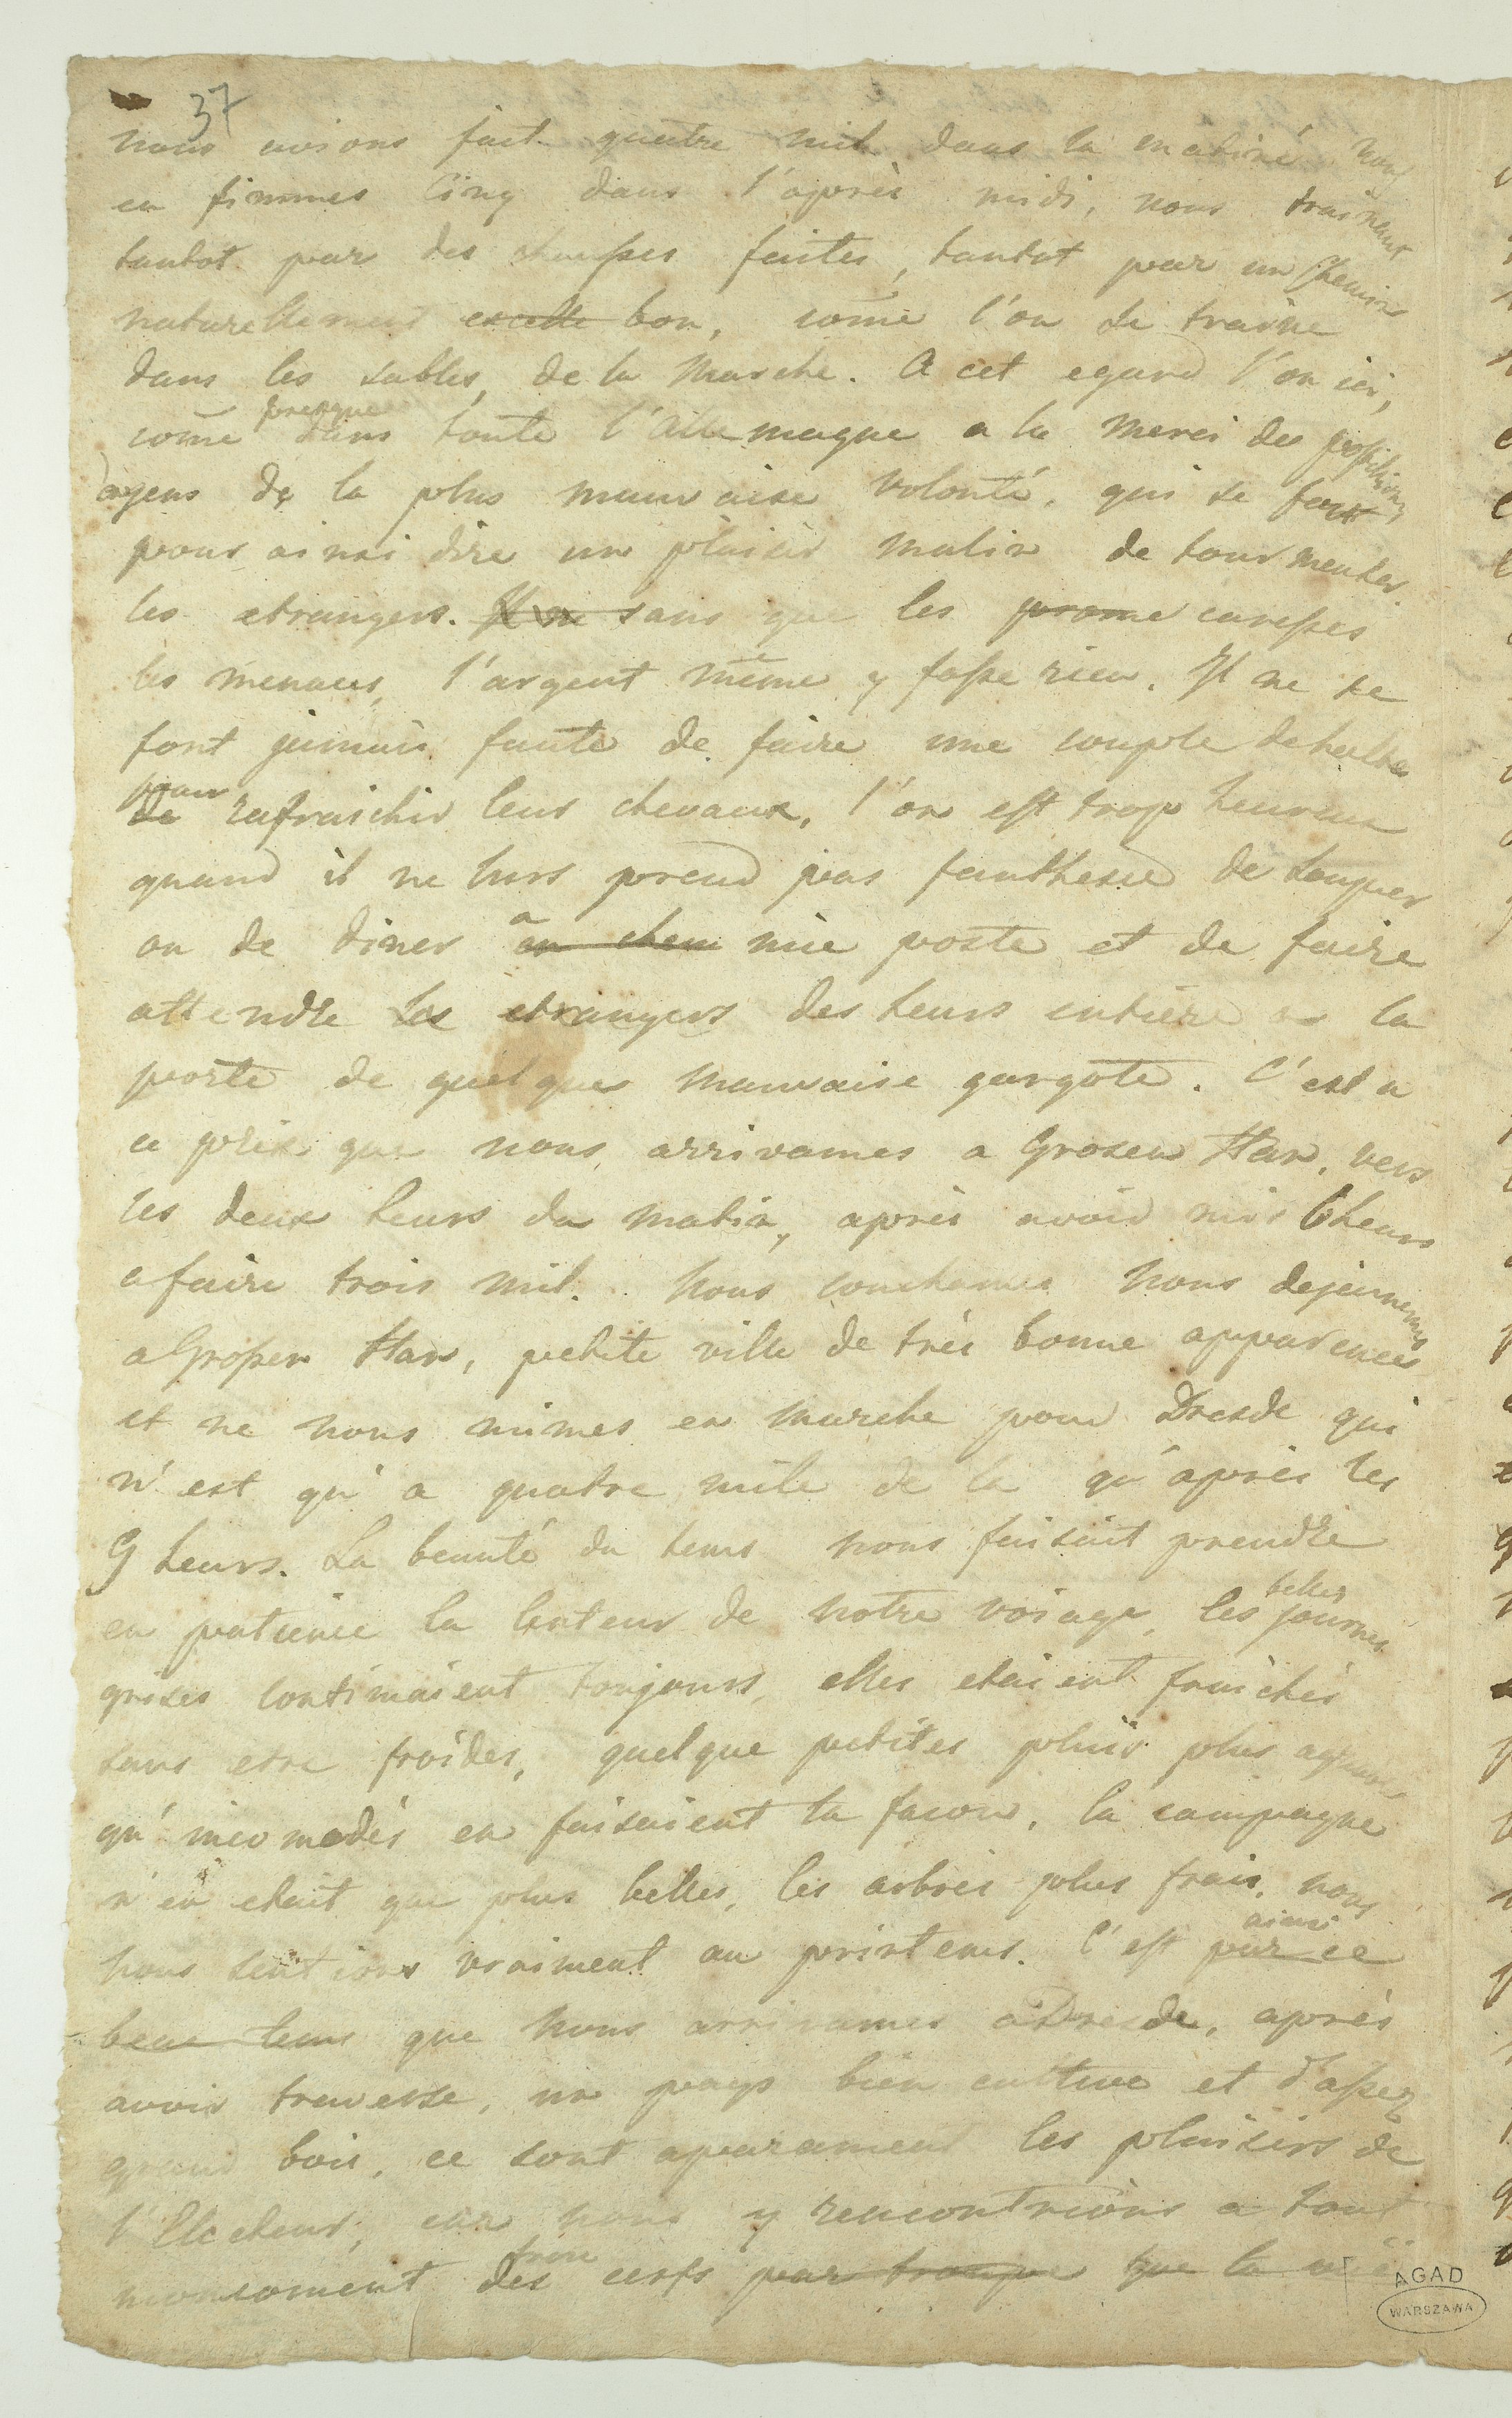 37
nous avions fait quatre mil dans la matiné nous
en fimmes cinq dans l'après midi, nous trainant
tantot par des chaussées faites, tantot par un chemin
naturellement excelle bon, come l'on se traine
dans les sables, de la Marche. A cet egard l'on ici,
presque
come dans toute l'Allemagne a la merci des postillions
gens de la plus mauvaise volonté, qui se font
pour ainsi dire un plaisir malin de tourmenter
les etrangers. Il ne sans que les prome caresses
les menaces, l'argent même y fasse rien. Il ne se
font jamais faute de faire une couple de haltes
pour
de rafraichir leurs chevaux, l'on est trop heureux
quand il ne leurs prend pas fanthesie de souper
a
ou de diner en chem mie poste et de faire
attendre les etrangers des heurs entière a la
porte de quelque mauvaise gargote. C'est a
ce prix que nous arrivames a Grosen Han, vers
les deux heurs du matin, après avoir mis 6 heurs
a faire trois mil. Nous couchames nous dejeunemes
a Grossen Han, petite ville de très bonne apparences
et ne nous mimes en marche pour Dresde qui
n'est qu'a quatre mile de la qu'après les
9 heurs. La beauté du tems nous faisait prendre
belles
en patience la lenteur de notre voiage, les journes
grises continuaient toujours, elles etaient fraiches
sans etre froides, quelque petites pluis plus
qu'incomodes en faisaient la facon, la campagne
n'en etait que plus belles, les arbres plus frais, nous
ainsi
nous sentions vraiment au printems. C'est par ce
beau tems que nous arrivames a Dresde, après
avoir traversse, un pays bien cultive et d'assez
grand bois, ce sont aparament les plaisirs de
l'Electeur, car nous y rencontrions a tout
des cerfs par troupe que la
AGAD
WARSZAWA